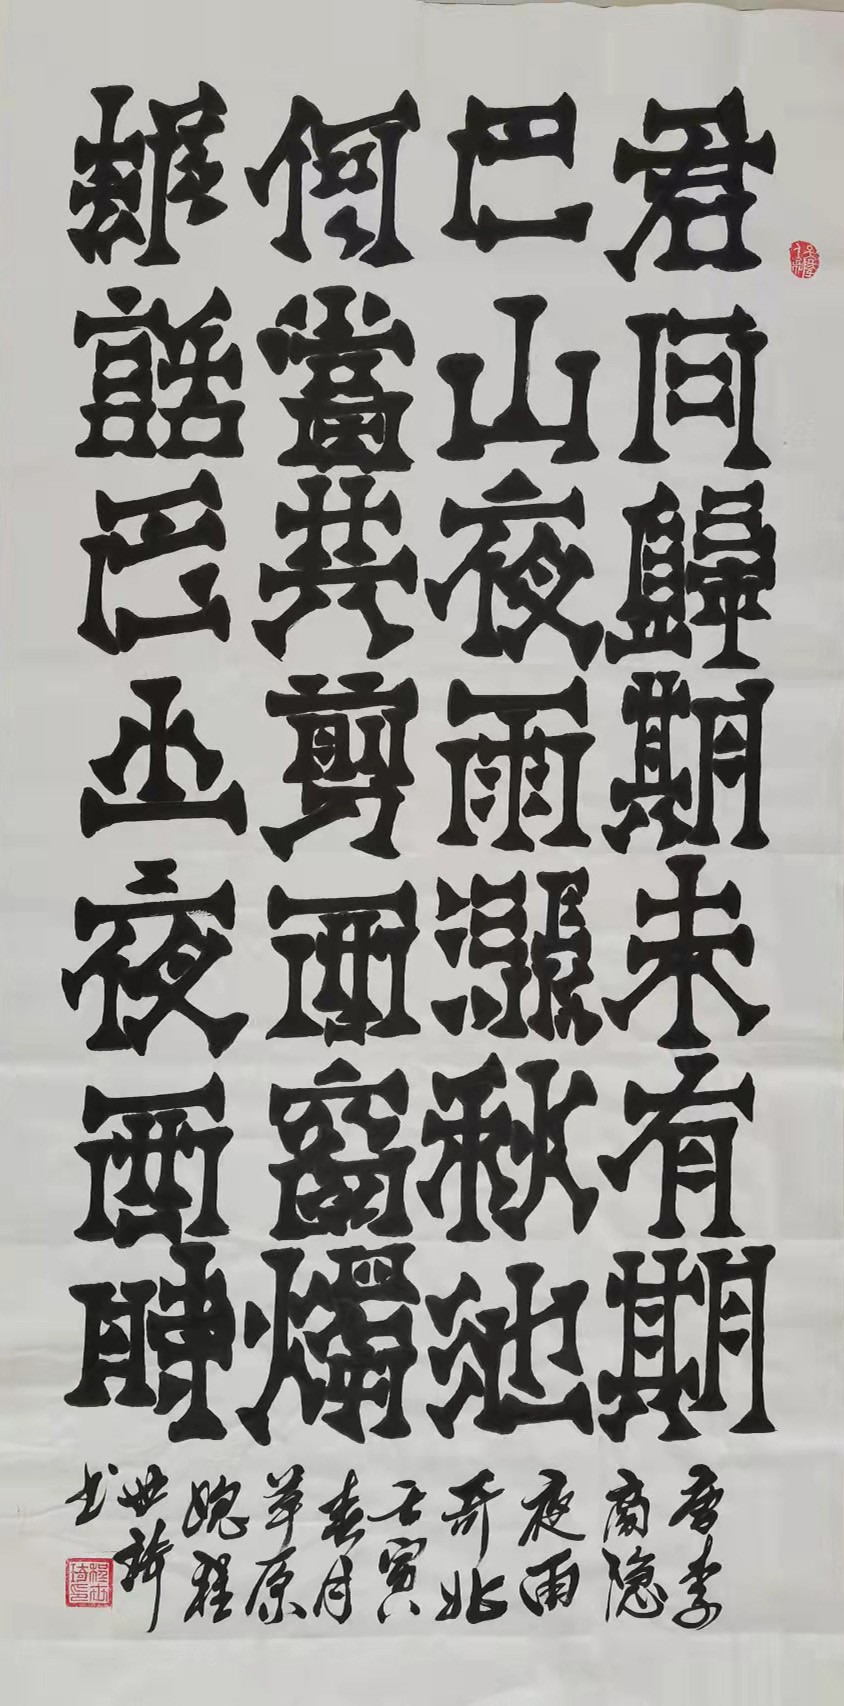 君问歸期未有期
巴山夜雨漲秋池
何當共剪西窗燭
卻話巴山夜雨時
唐李
商隐
夜雨
寄北
壬寅
春月
草原
程
世琦
书